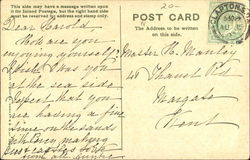 This side may have a message written upon
it for Inland Postage, but the right hand side
must be reserved for address and stamp only.
POST CARD
The Address to be written
on this side.
CLAPTON
20
Dear Harold
How are you
enjoying yourself
I wish I was you
at the sea side
I expect that you
are having a fine
time on the sands
with Percy making
castles
from all
Master H. Manley
Margate
Kent